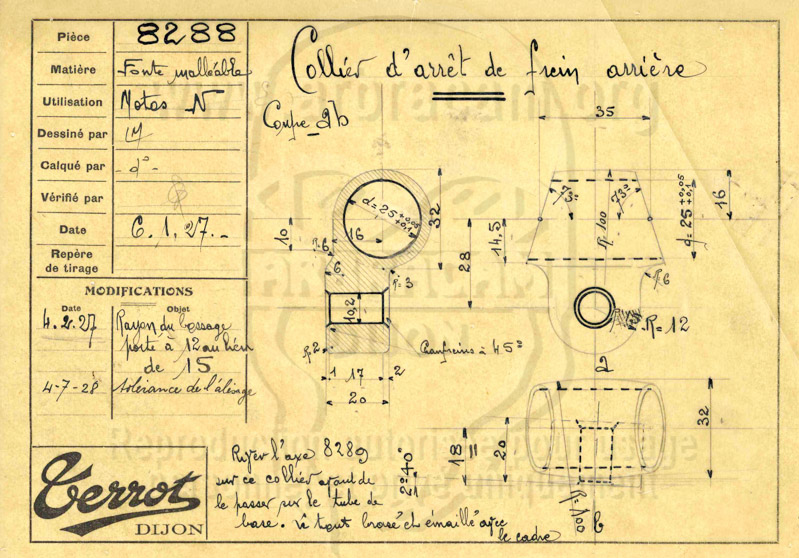 Pièce 8288
Matière Fonte malléable
Utilisation Motos N
Dessiné par
Calqué par - d° -
Vérifié par
Date 6.1.27.-
Repère
de tirage
MODIFICATIONS
Date Objet
4.2.27 Rayon du bossage
porté à 12 au lieu
de 15
4-7-28 tolérance de l'alésage
Terrot
DIJON
Collier d'arrêt de frein arrière
Coupe ab
d=25 +0,05 +0,1
16
10
R=6
6
32
28
R=3
10,2
R=2
Chanfreins à 45°
1 17 2
20
35
73°
73°
R=100
14,5
d=25 +0,05 +0,1
16
R=6
R=12
a
18
20
2°40'
32
R=100
b
River l'axe 8289
sur ce collier avant de
le passer sur le tube de
base. Le tout brasé et émaillé avec
le cadre